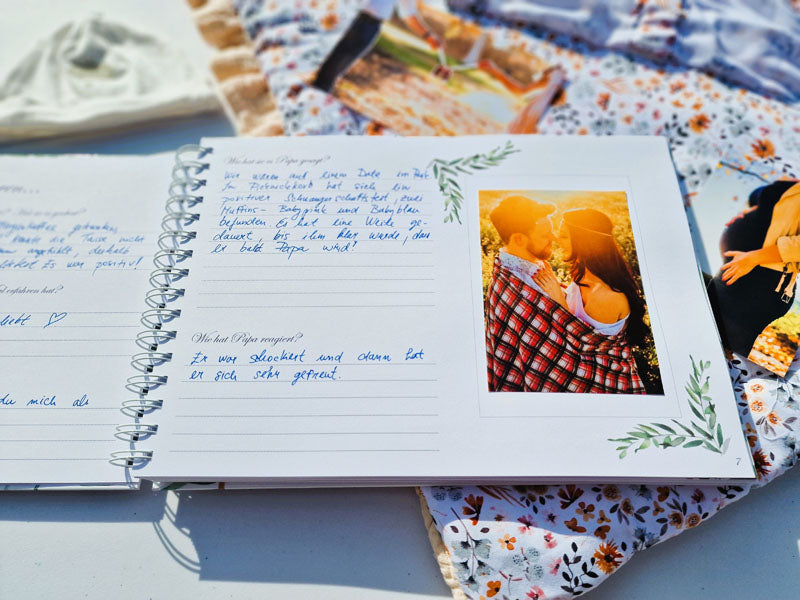 getrunken,
die Tasse nicht
angefühlt, deshalb
Es war positiv!
erfahren hat?
liebt ♡
du mich als
es Papa gesagt?
Wir waren auf einem Date im Park.
Im Picknickkorb hat sich ein
positiver Schwangerschaftstest, zwei
Muffins - Babypink und Babyblau
befunden. Es hat eine Weile ge-
dauert, bis ihm klar wurde, dass
er bald Papa wird!
Wie hat Papa reagiert?
Er war schockiert und dann hat
er sich sehr gefreut.
7